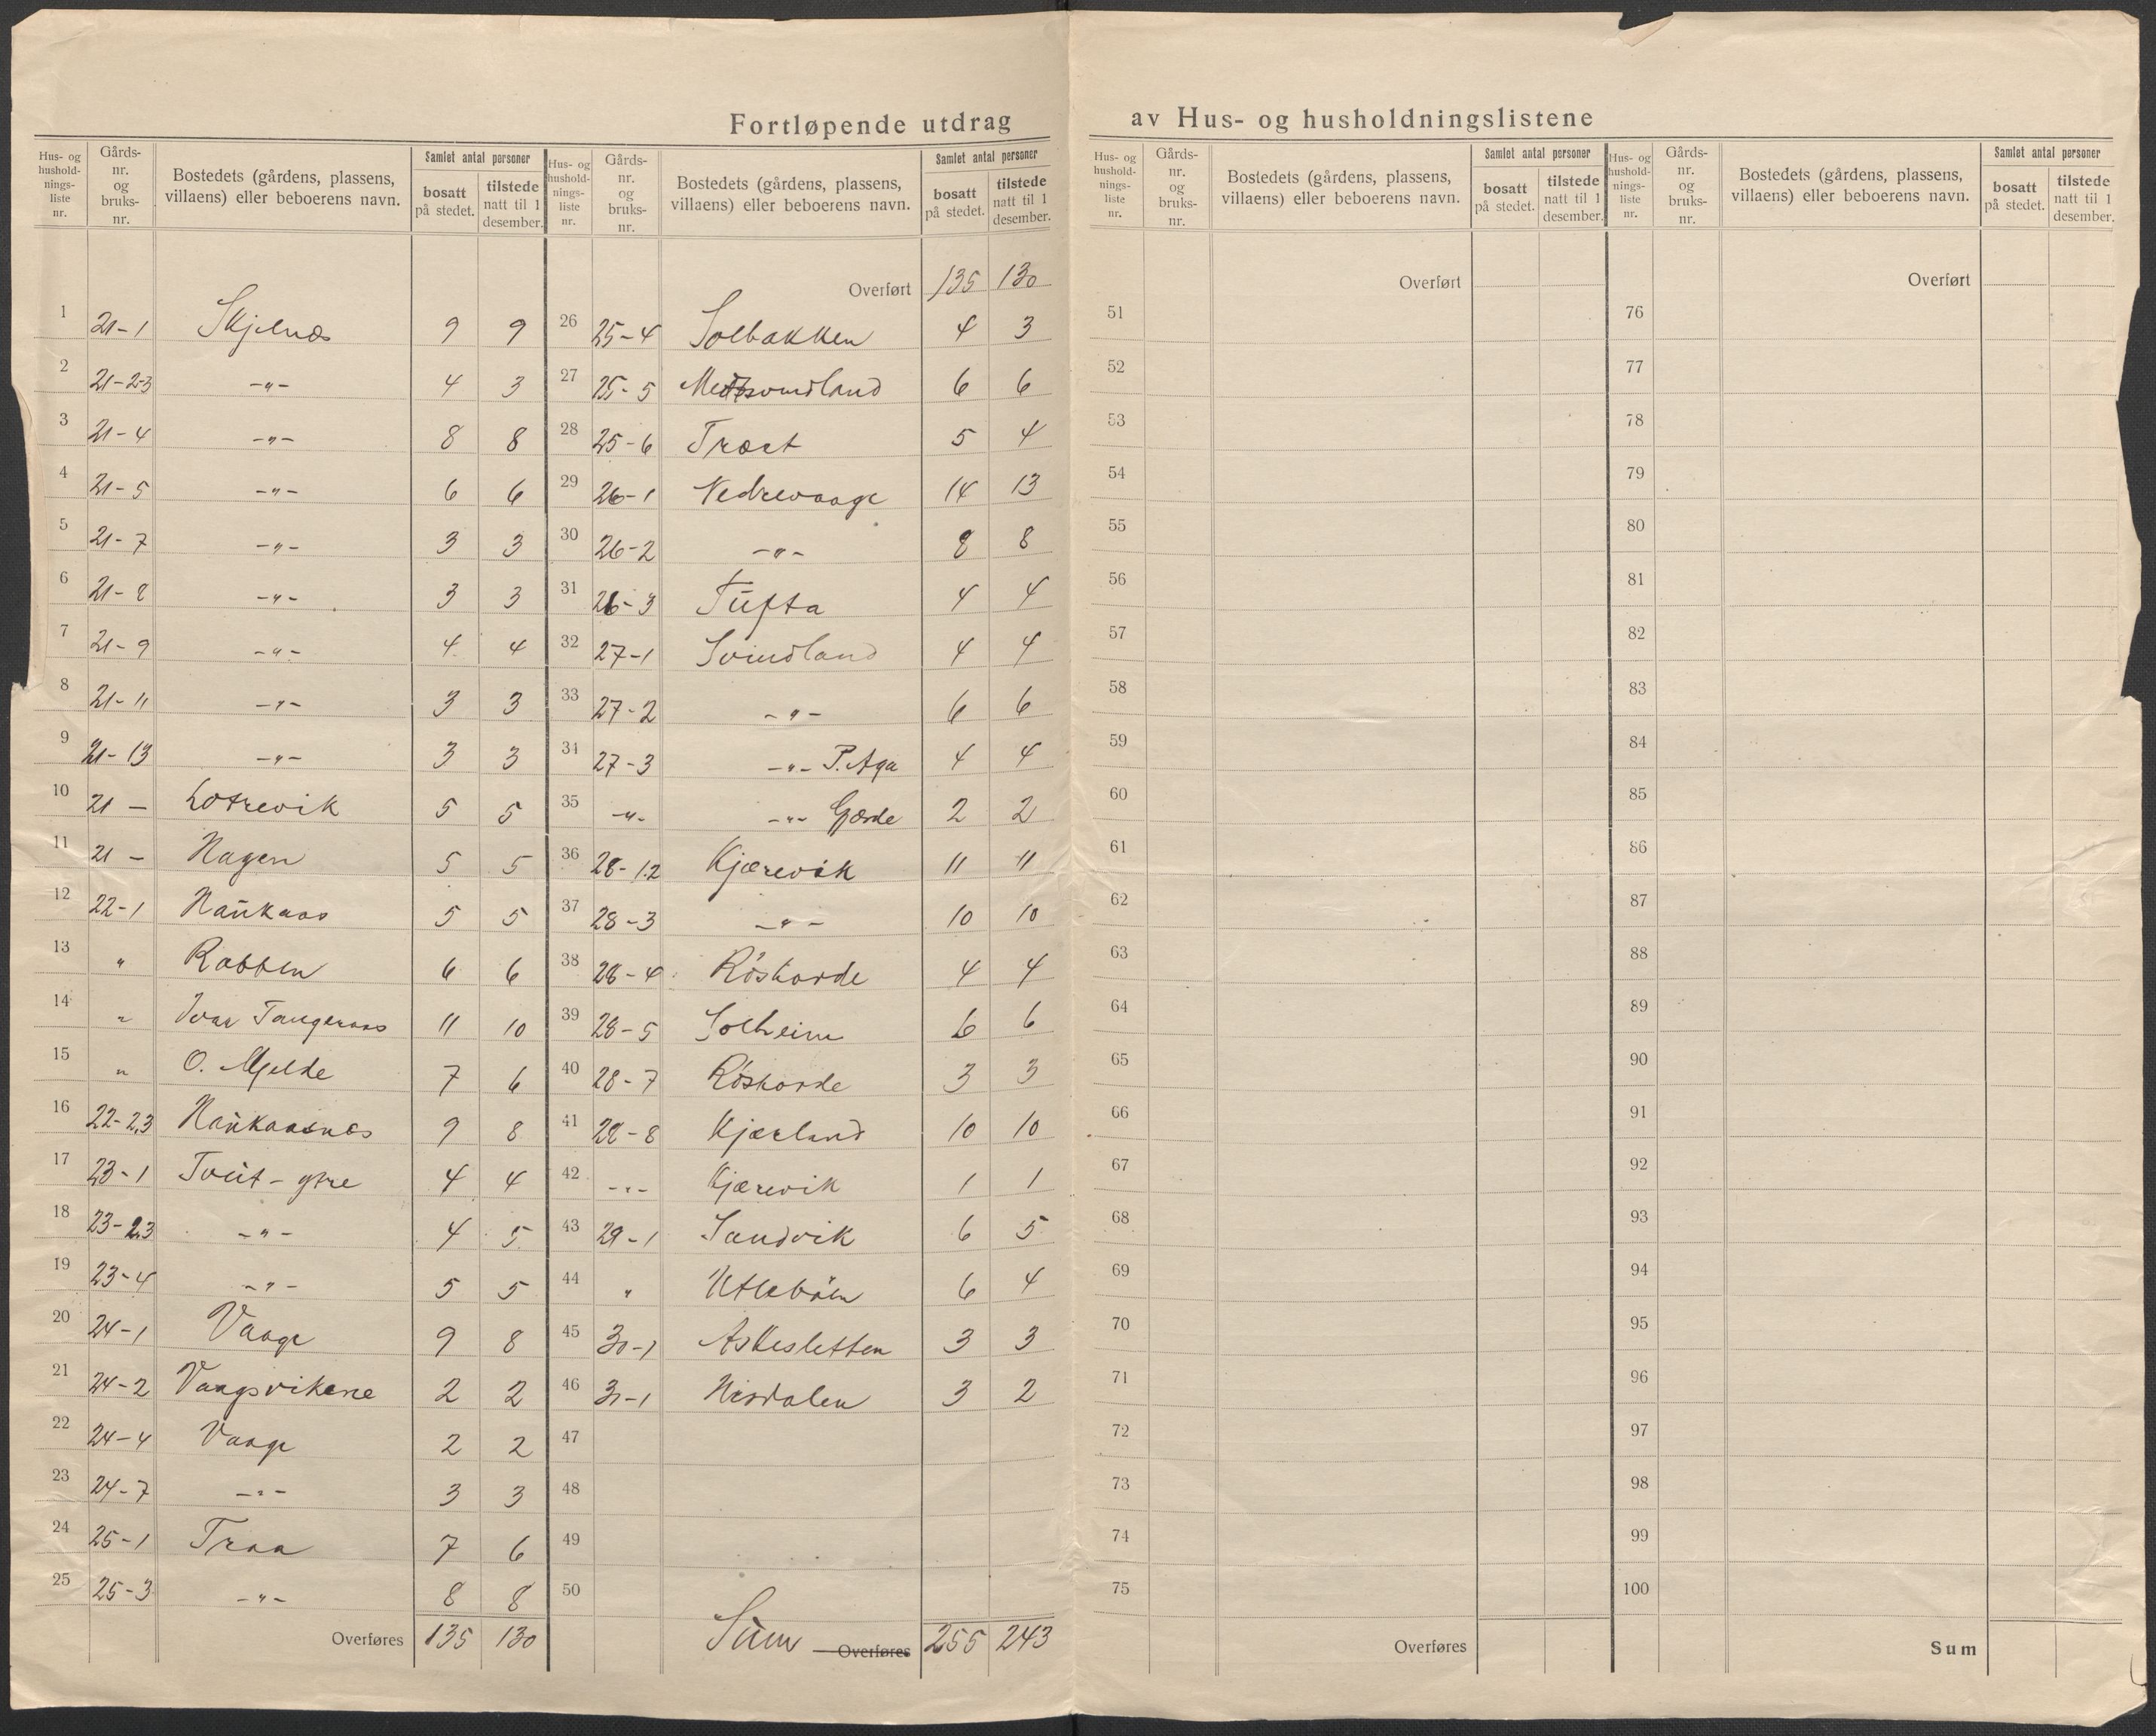 Fortløpende utdrag av Hus- og husholdningslistene
Hus- og hushold- nings- liste nr. | Gårds- nr. og bruks- nr. | Bostedets (gårdens, plassens, villaens) eller beboerens navn. | Samlet antal personer | bosatt på stedet. | tilstede natt til 1 desember.
1 21-1 Skjelnæs 9 9
2 21-2-3 -"- 4 3
3 21-4 -"- 8 8
4 21-5 -"- 6 6
5 21-7 -"- 3 3
6 21-8 -"- 3 3
7 21-9 -"- 4 4
8 21-11 -"- 3 3
9 21-13 -"- 3 3
10 21- Lotrevik 5 5
11 21- Hagen 5 5
12 22-1 Haukaas 5 5
13 " Rabben 6 6
14 " Ivar Tangeraas 11 10
15 " O. Mjelde 7 6
16 22-2,3 Haukaasnes 9 8
17 23-1 Tveit-ytre 4 4
18 23-2,3 -"- 4 5
19 23-4 -"- 5 5
20 24-1 Vaage 9 8
21 24-2 Vaagsvikene 2 2
22 24-4 Vaage 2 2
23 24-7 -"- 3 3
24 25-1 Traa 7 6
25 25-3 -"- 8 8
Overføres 135 130
Hus- og hushold- nings- liste nr. | Gårds- nr. og bruks- nr. | Bostedets (gårdens, plassens, villaens) eller beboerens navn. | Samlet antal personer | bosatt på stedet. | tilstede natt til 1 desember.
Overført 135 130
26 25-4 Solbakken 4 3
27 25-5 6 6
28 25-6 Træet 5 4
29 26-1 Nedrevaage 14 13
30 26-2 -"- 8 8
31 26-3 Tufta 4 4
32 27-1 Svindland 4 4
33 27-2 -"- 6 6
34 27-3 -"- P. Aga 4 4
35 -"- -"- Gjerde 2 2
36 28-1.2 Kjærevik 11 11
37 28-3 -"- 10 10
38 28-4 Röskarde 4 4
39 28-5 Solheim 6 6
40 28-7 Röskarde 3 3
41 28-8 Kjærland 10 10
42 -"- Kjærevik 1 1
43 29-1 Sandvik 6 5
44 " Utleböen 6 4
45 30-1 Askesletten 3 3
46 31-1 Nisdalen 3 2
47
48
49
50
Sum Overføres 255 243
Hus- og hushold- nings- liste nr. | Gårds- nr. og bruks- nr. | Bostedets (gårdens, plassens, villaens) eller beboerens navn. | Samlet antal personer | bosatt på stedet. | tilstede natt til 1 desember.
Overført
51
52
53
54
55
56
57
58
59
60
61
62
63
64
65
66
67
68
69
70
71
72
73
74
75
Overføres
Hus- og hushold- nings- liste nr. | Gårds- nr. og bruks- nr. | Bostedets (gårdens, plassens, villaens) eller beboerens navn. | Samlet antal personer | bosatt på stedet. | tilstede natt til 1 desember.
Overført
76
77
78
79
80
81
82
83
84
85
86
87
88
89
90
91
92
93
94
95
96
97
98
99
100
Sum